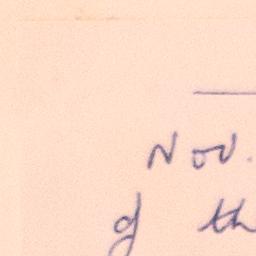 Nov.
of th